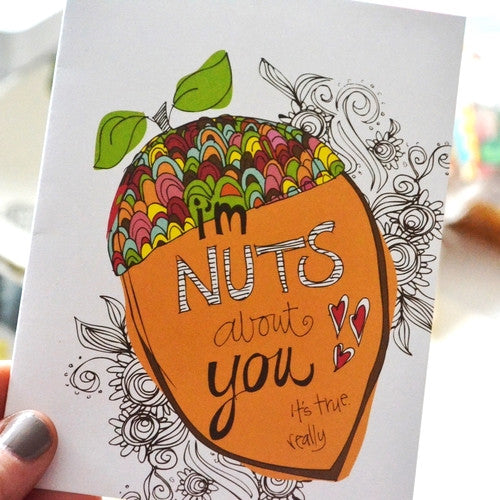 i'm
NUTS
about
you
it's true.
really